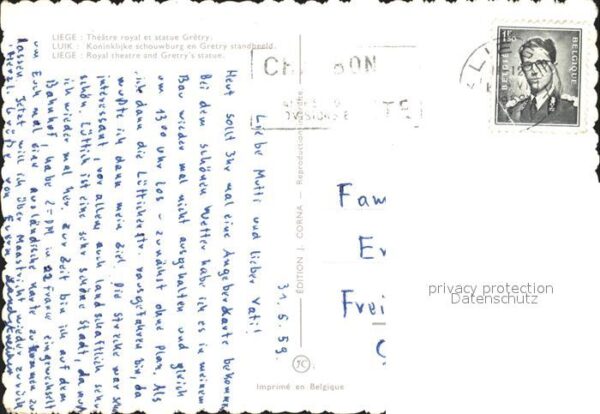 LIEGE : Théâtre royal et statue Grétry.
LUIK : Koninklijke schouwburg en Gretry standbeeld.
LIEGE : Royal theatre and Gretry's statue.
31.5.59.
Liebe Mutti und lieber Vati!
Heut sollt Ihr mal eine Angeberkarte bekommen.
Bei dem schönen Wetter habe ich es in meinem
Bau wieder mal nicht ausgehalten und gleich
um 13⁰⁰ Uhr los - zunächst ohne Plan. Als
ich dann die Lütticherstr. rausgefahren bin, da
wußte ich dann mein Ziel. Die Strecke war sehr
interessant, vor allem auch landschaftlich sehr
schön. Lüttich ist eine sehr schöne Stadt, da muß
ich wieder mal her. Zur Zeit bin ich auf dem
Bahnhof, habe 2.-DM in 22 Francs eingewechselt
um Euch mal eine ausländische Karte zukommen zu
lassen. Jetzt will ich über Maastricht wieder zurück.
Herzl. Grüße von Eurem
EDITION J. CORNA - Reproduction interdite
JC
Imprimé en Belgique
BELGIE
BELGIQUE
1F50
Fam
Er
Frei
privacy protection
Datenschutz